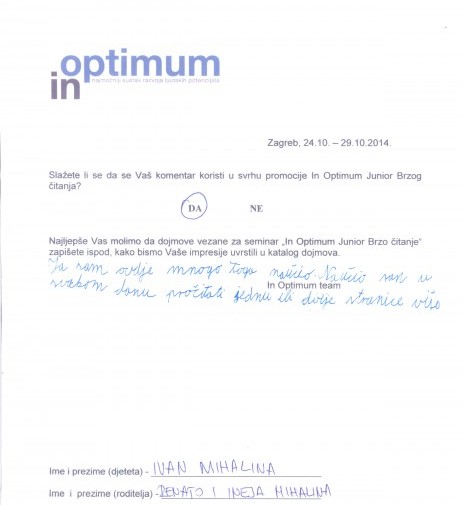 optimum
in
najmoćniji sustav razvoja ljudskih potencijala
Zagreb, 24.10. – 29.10.2014.
Slažete li se da se Vaš komentar koristi u svrhu promocije In Optimum Junior Brzog
čitanja?
DA NE
Najljepše Vas molimo da dojmove vezane za seminar „In Optimum Junior Brzo čitanje“
zapišete ispod, kako bismo Vaše impresije uvrstili u katalog dojmova.
Ja sam ovdje mnogo toga naučio. Naučio sam u
In Optimum team
svakom danu pročitati jednu ili dvije stranice više
Ime i prezime (djeteta) - IVAN MIHALINA
Ime i prezime (roditelja) - RENATO I INEJA MIHALINA